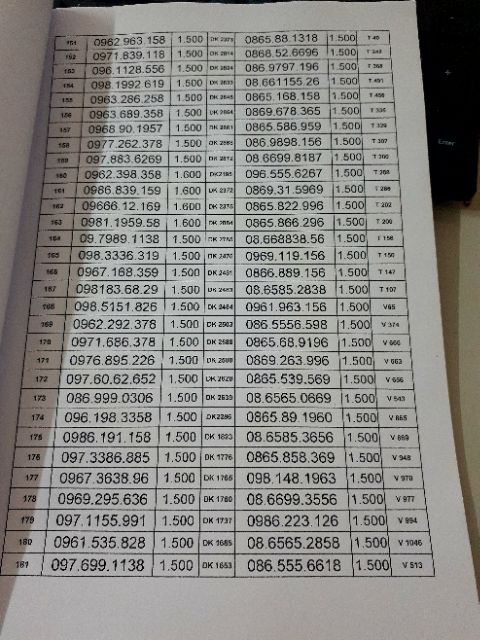 151 0962.963.158 1.500 DK 2373 0865.88.1318 1.500 T 40
152 0971.839.118 1.500 DK 2814 0868.52.6696 1.500 T 343
153 096.1128.556 1.500 DK 2824 086.9797.196 1.500 T 368
154 098.1992 619 1.500 DK 2833 08.661155.26 1.500 T 491
155 0963.286.258 1.500 DK 2845 0865.168.158 1.500 T 456
156 0963.689.358 1.500 DK 2864 0869.678.365 1.500 T 335
157 0968 90.1957 1.500 DK 2881 0865.586.959 1.500 T 329
158 0977.262.378 1.500 DK 2885 086.9898.156 1.500 T 307
159 097.883.6269 1.500 DK 2812 08.6699.8187 1.500 T 300
160 0962.398.358 1.600 DK2195 096.555.6267 1.500 T 268
161 0986.839.159 1.600 DK 2372 0869.31.5969 1.500 T 286
162 09666.12.169 1.600 DK 2375 0865.822.996 1.500 T 202
163 0981.1959.58 1.600 DK 2884 0865.866.296 1.500 T 200
164 09.7989.1138 1.500 DK 2755 08.668838.56 1.500 T 156
165 098.3336.319 1.500 DK 2470 0969.119.156 1.500 T 150
166 0967.168.359 1.500 DK 2431 0866.889.156 1.500 T 147
167 098183.68.29 1.500 DK 2483 08.6585.2838 1.500 T 107
168 098.5151.826 1.500 DK 2484 0961.963.156 1.500 V65
169 0962.292.378 1.500 DK 2563 086.5556.598 1.500 V 374
170 0971.686.378 1.500 DK 2588 0865.68.9196 1.500 V 666
171 0976.895.226 1.500 DK 2688 0869.263.996 1.500 V 663
172 097.60.62.652 1.500 DK 2628 0865.539.569 1.500 V 656
173 086.999.0306 1.500 DK 2633 08.6565.0669 1.500 V 543
174 096.198.3358 1.500 DK2296 0865.89.1960 1.500 V 865
175 0986.191.158 1.500 DK 1893 08.6585.3656 1.500 V 889
176 097.3386.885 1.500 DK 1776 0865.858.369 1.500 V 948
177 0967.3638.96 1.500 DK 1765 098.148.1963 1.500 V 970
178 0969.295.636 1.500 DK 1760 08.6699.3556 1.500 V 977
179 097.1155.991 1.500 DK 1737 0986.223.126 1.500 V 994
180 0961.535.828 1.500 DK 1685 08.6565.2858 1.500 V 1046
181 097.699.1138 1.500 DK 1653 086.555.6618 1.500 V 513
Enter